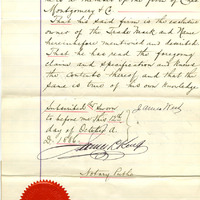 Montgomery & Co.
That his said firm is the exclusive
owner of the Trade Mark and Name
hereinbefore mentioned and described
That he has read the foregoing
claims and specification and knows
the contents thereof and that the
same is true of his own knowledge
Subscribed & Sworn
to before me this 12th
day of October A
D. 1886.
Notary Public